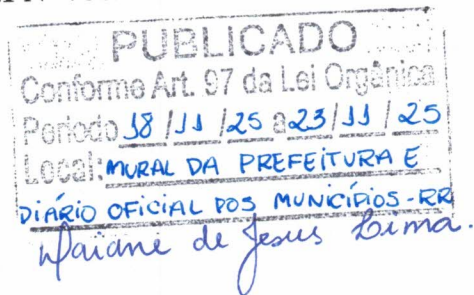 PUBLICADO
Conforme Art. 97 da Lei Orgânica
Periodo 18/11/25 a 23/11/25
Local: MURAL DA PREFEITURA E
DIÁRIO OFICIAL DOS MUNICÍPIOS-RR
Daiane de Jesus Lima.